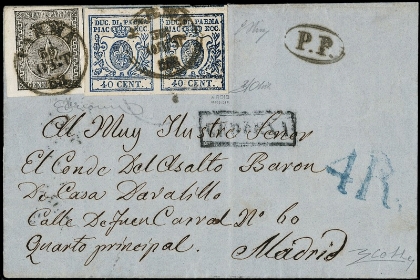 DUC. DI PARMA
PIAC. ECC.
40 CENT.
DUC. DI PARMA
PIAC. ECC.
40 CENT.
P.P.
Al Muy Ilustre Señor
El Conde Del Asalto Baron
De Casa Davalillo
Calle De Fuencarral Nº 60
Quarto principal.
Madrid
4R.